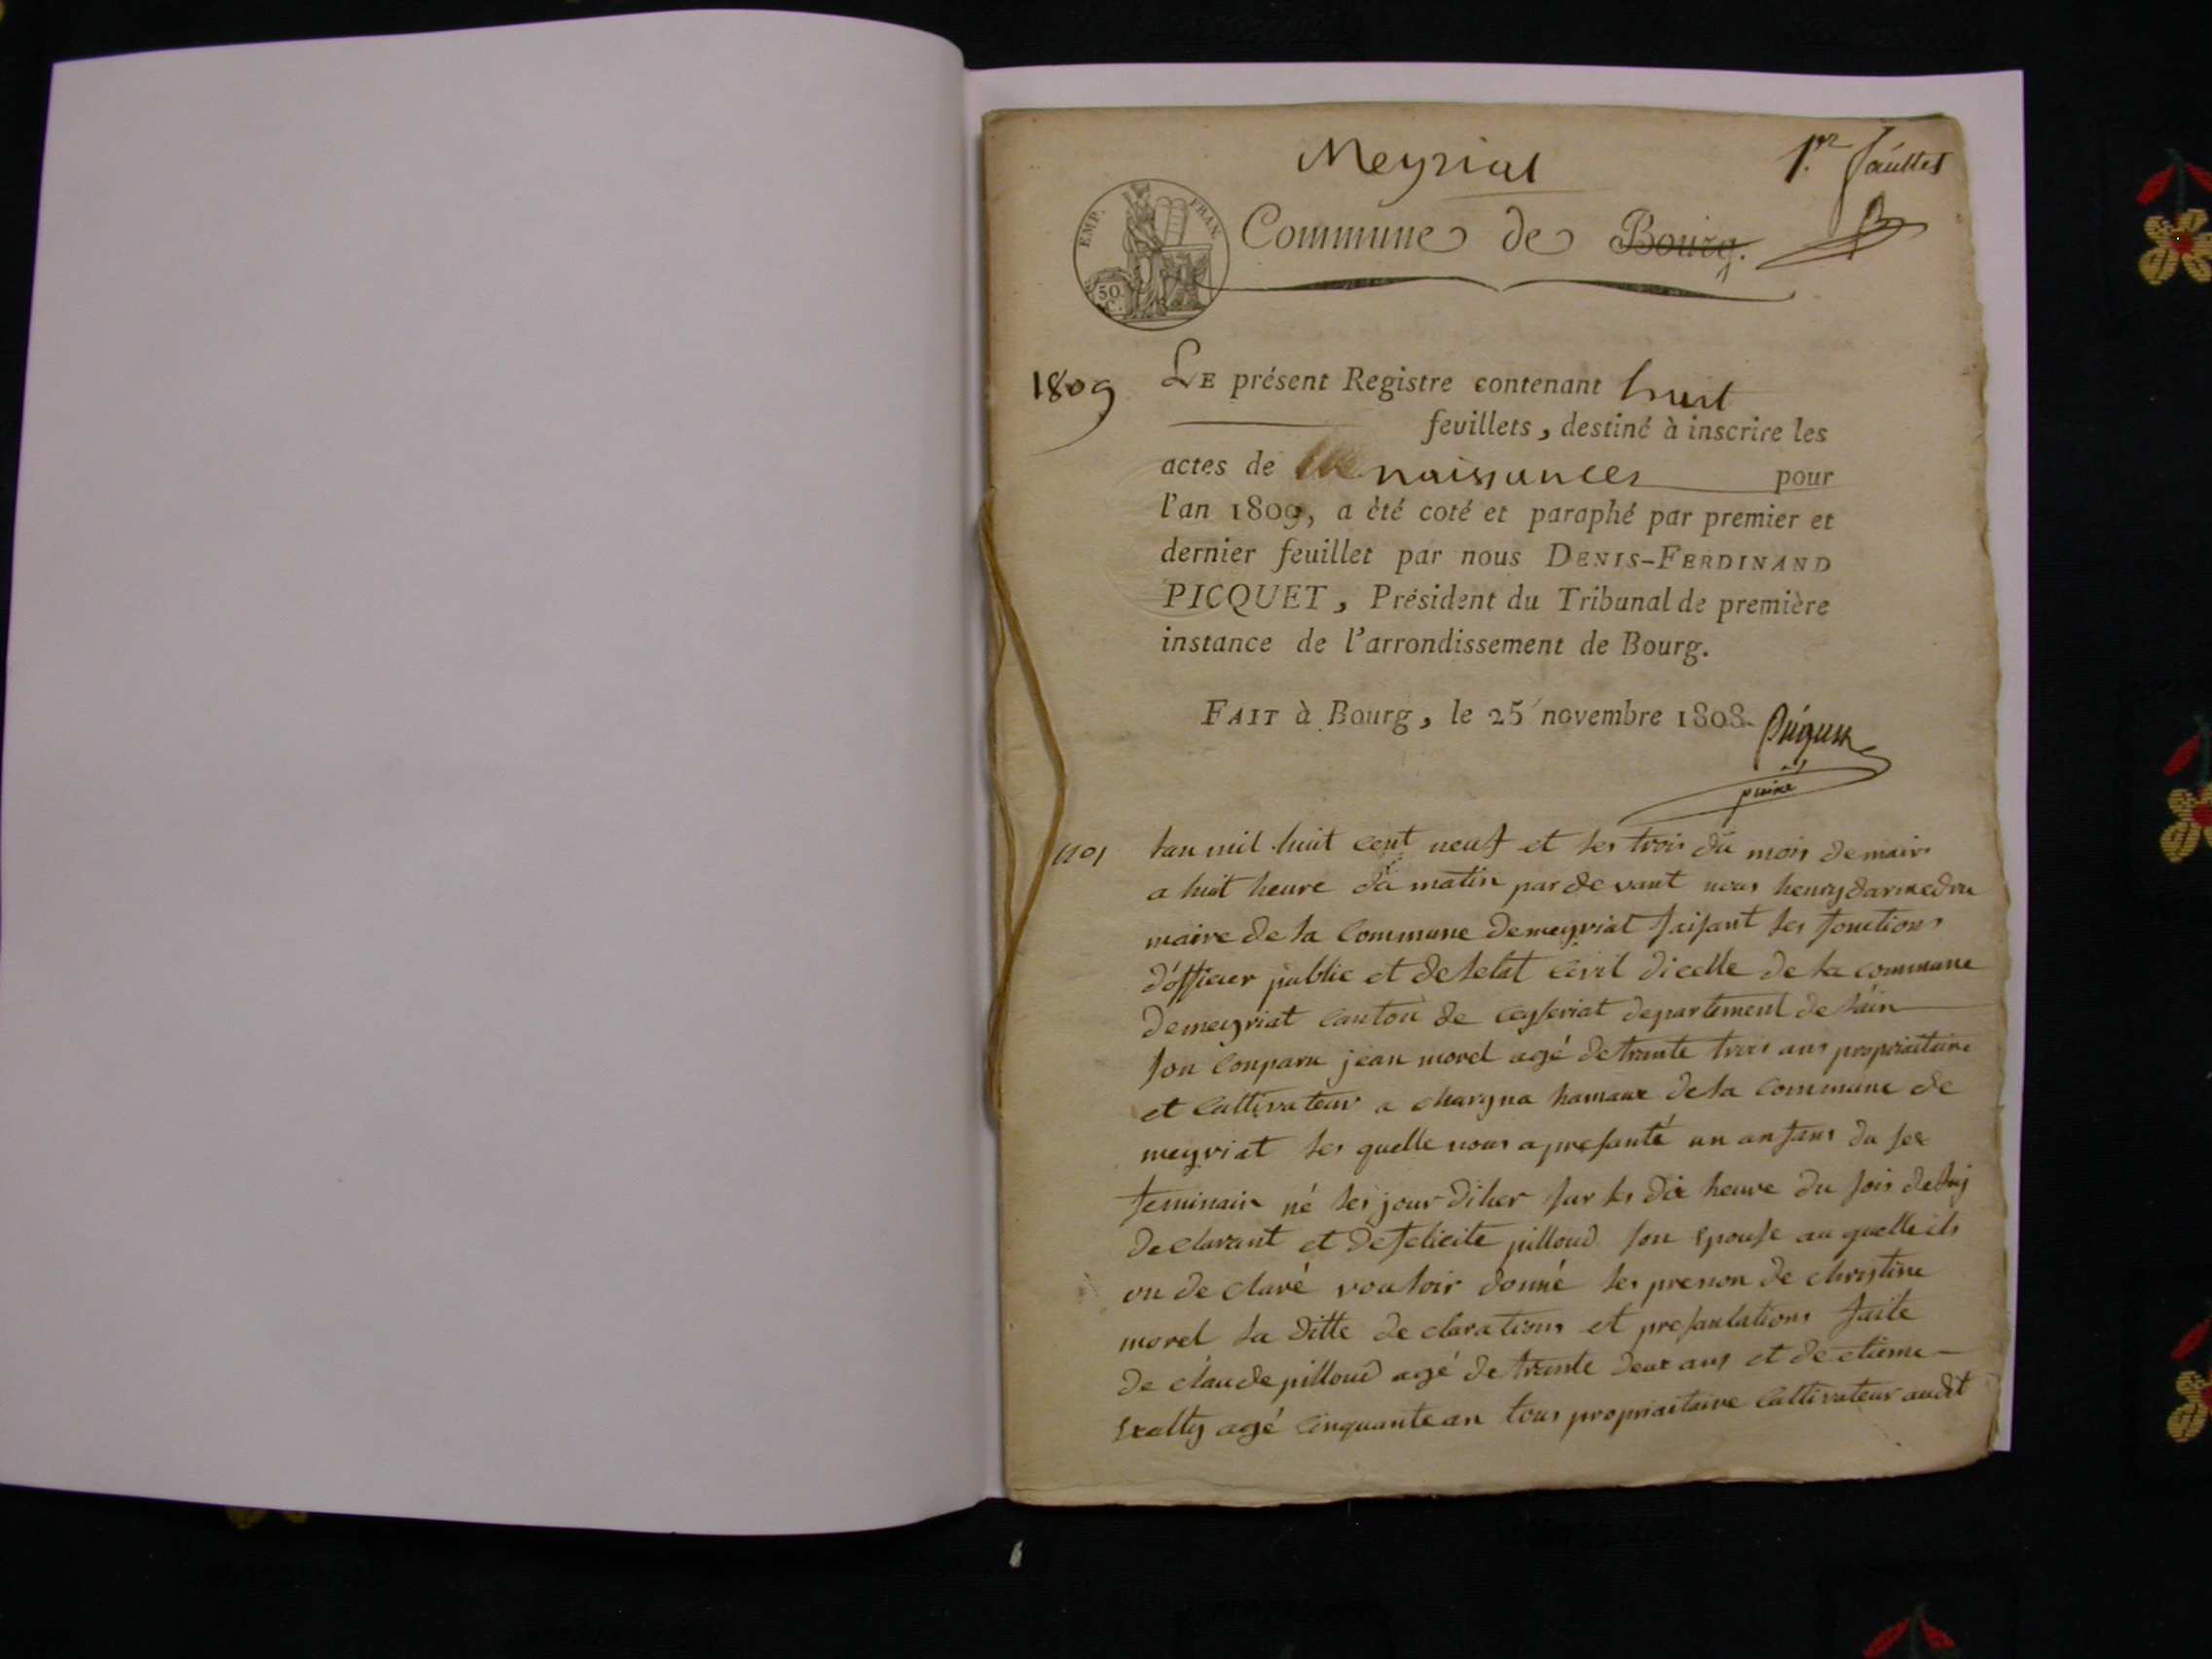 Meyriat
1.er feuillet
EMP. FRAN.
50 C.
Commune de Bourg.
1809
LE présent Registre contenant huit
feuillets, destiné à inscrire les
actes de naissances pour
l'an 1809, a été coté et paraphé par premier et
dernier feuillet par nous DENIS-FERDINAND
PICQUET, Président du Tribunal de première
instance de l'arrondissement de Bourg.
FAIT à Bourg, le 25 novembre 1808.
Picquet
lan mil huit cent neuf et les trois du mois de mars
a huit heure du matin par de vant nous henry
maire de la Commune de meyriat faisant les fonctions
d'officier public et de letat Civil dicelle de la commune
de meyriat Canton de ceyseriat departement de lain
son Conparu jean morel agé de trante trois ans propriaitaire
et Cultivateur a charyna hamaux de la Commune de
meyriat les quelle nous a presanté un anfans du sex
feminain né les jour diher sur les dix heure du soir de luy
de clarant et de felicite pilloud son Epouse au quelle ils
on de claré vouloir donné les prenon de christine
morel la ditte de clarations et presantations faite
de claude pilloud agé de trante deux ans et de etiene
agé Cinquante an tous propriaitaire Cultivateur audit